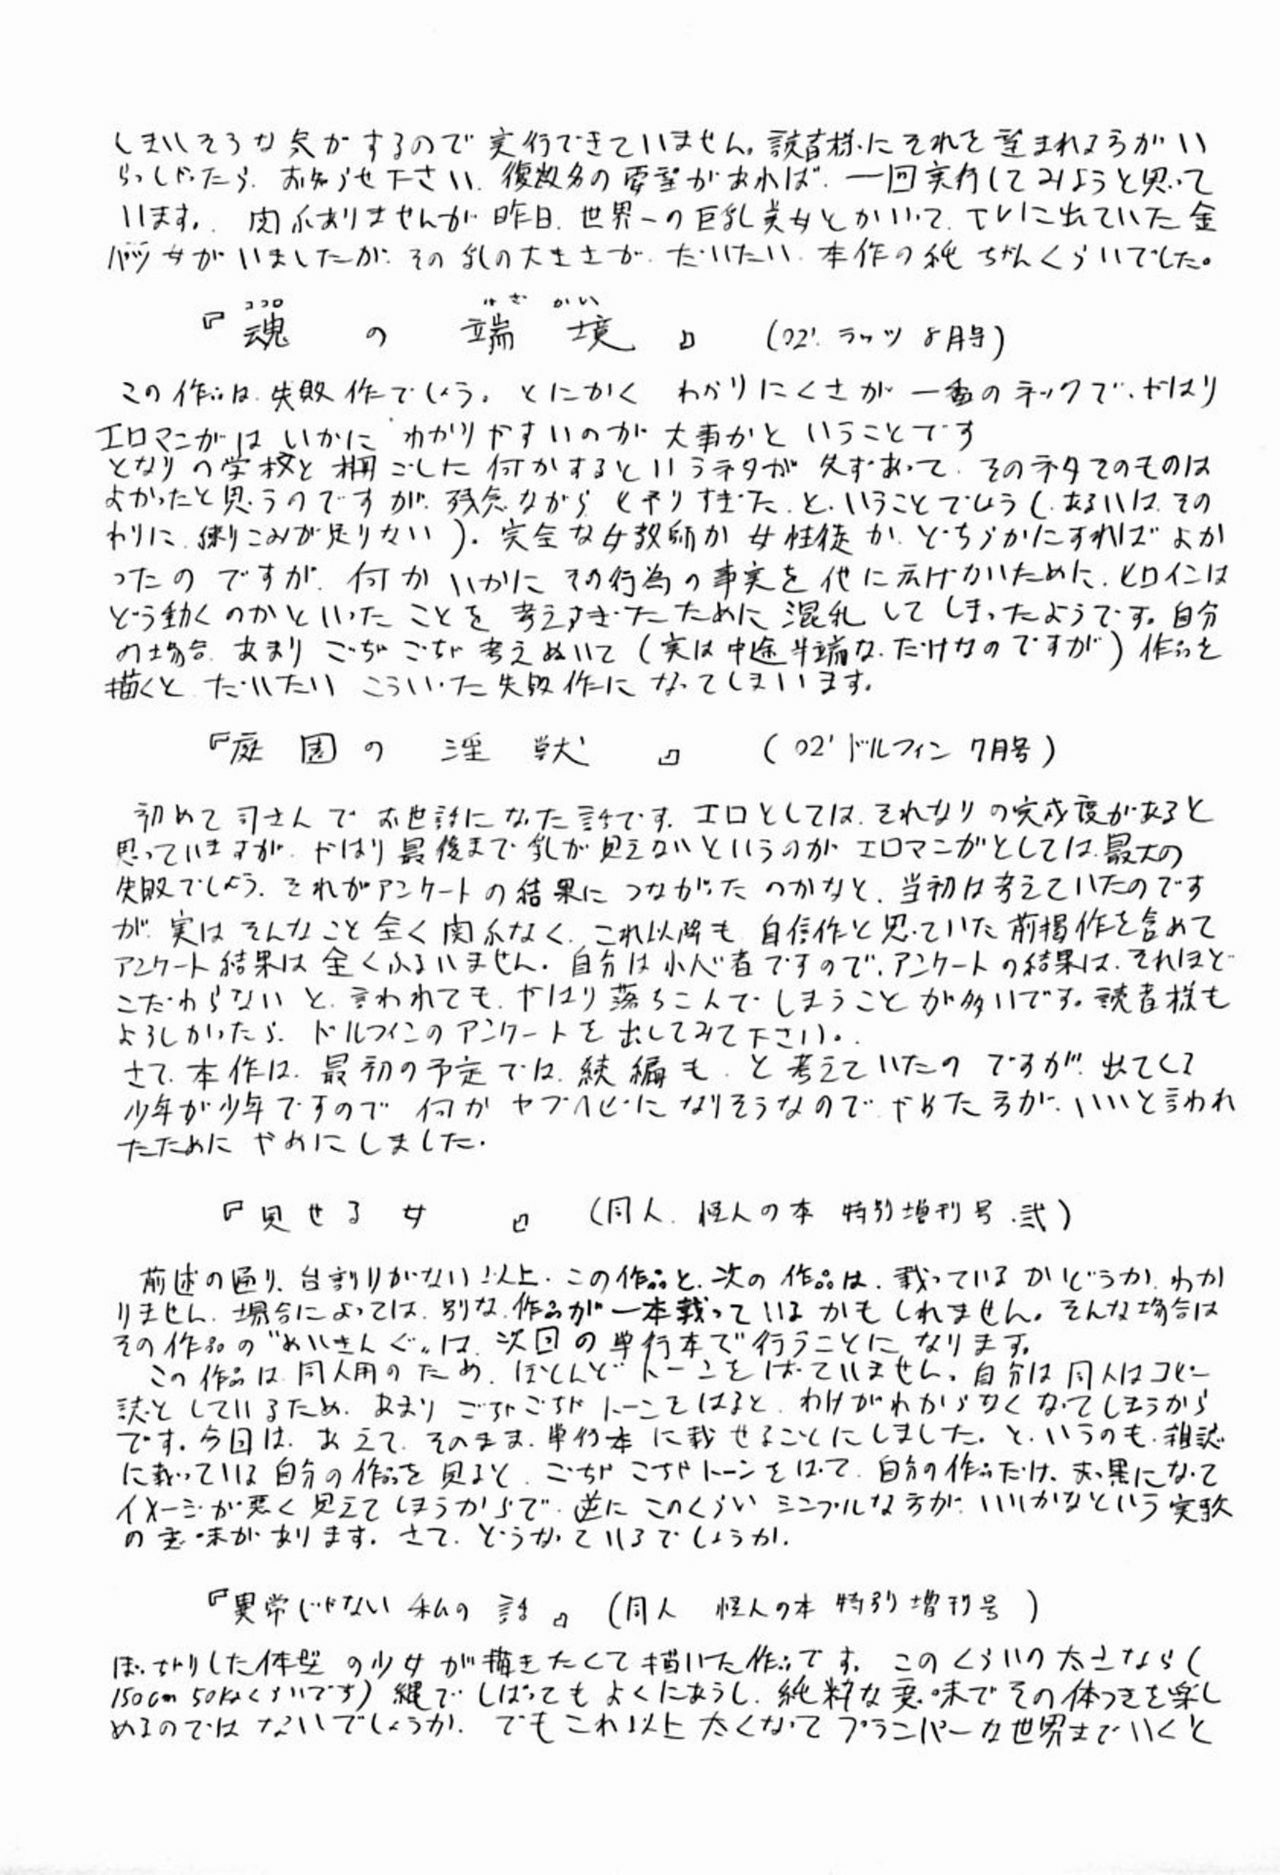 しまいそうな気がするので実行できていません。読者様にそれを望まれる方がい
らっしゃったら、お知らせ下さい。複数名の要望があれば、一回実行してみようと思って
います。関係ありませんが昨日、世界一の巨乳美女とかいって、TVに出ていた金
パツ女がいましたが、その乳の大きさが、だいたい、本作の純ちゃんくらいでした。
『魂の端境』(02'. ラッツ 8月号)
ココロ はざかい
この作品は、失敗作でしょう。とにかくわかりにくさが一番のネックで、やはり
エロマンガはいかにわかりやすいのが大事かということです
となりの学校と柵ごしに何かするというネタが先ずあって、そのネタそのものは
よかったと思うのですが、残念ながらヒネリすぎた、ということでしょう(、あるいは、その
わりに、練りこみが足りない)。完全な女教師か女生徒か、どちらかにすればよか
ったのですが、何かいかにその行為の事実を他に広げないために、ヒロインは
どう動くのかといったことを考えすぎたために混乱してしまったようです。自分
の場合、あまりごちゃごちゃ考えぬいて(実は中途半端な、だけなのですが)作品を
描くと、だいたいこういった失敗作になってしまいます。
『庭園の淫獣』(02' ドルフィン 7月号)
初めて司さんでお世話になった話です。エロとしては、それなりの完成度があると
思っていますが、やはり最後まで乳が見えないというのがエロマンガとしては、最大の
失敗でしょう、それがアンケートの結果につながったのかなと、当初は考えていたのです
が、実はそんなこと全く関係なく、これ以降も、自信作と思っていた前掲作を含めて
アンケート結果は全くふるいません。自分は小心者ですので、アンケートの結果は、それほど
こだわらないと、言われても、やはり落ちこんでしまうことが多いです。読者様も
よろしかったら、ドルフィンのアンケートを出してみて下さい。
さて、本作は、最初の予定では、続編も、と考えていたのですが、出てくる
少年が少年ですので何かヤブヘビになりそうなので、やめた方が、いいと言われ
たためにやめにしました。
『見せる女』(同人、怪人の本 特別増刊号、弐)
前述の通り、台割りがない以上、この作品と、次の作品は、載っているかどうか、わか
りません、場合によっては、別な、作品が一本載っているかもしれません。そんな場合は
その作品の"めいきんぐ"は、次回の単行本で行うことになります。
この作品は、同人用のため、ほとんどトーンをはっていません。自分は同人はコピー
誌としているため、あまりごちゃごちゃトーンをはると、わけがわからなくなってしまうから
です。今回は、あえて、そのまま、単行本に載せることにしました。というのも、雑誌
に載っている自分の作品を見ると、ごちゃごちゃトーンをはって、自分の作品だけ、まっ黒になって
イメージが悪く見えてしまうからで、逆にこのくらいシンプルな方が、いいかなという実験
の意味があります。さて、どうなっているでしょうか。
『異常じゃない私の話』(同人 怪人の本 特別増刊号)
ぽっちゃりした体型の少女が描きたくて描いた作品です。このくらいの太さなら(
150cm 50kgくらいです)縄でしばってもよくにあうし、純粋な意味でその体つきを楽し
めるのではないでしょうか、でもこれ以上太くなってプランパーな世界までいくと